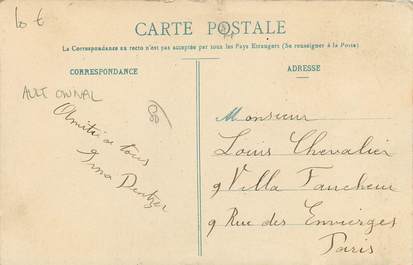 10 €
CARTE POSTALE
La Correspondance au recto n'est pas acceptée par tous les Pays Etrangers (Se renseigner à la Poste)
CORRESPONDANCE
ADRESSE
AULT OWNAL
Amitié à tous
Irma
Monsieur
Louis Chevalier
9 Villa Faucheur
9 Rue des Envierges
Paris